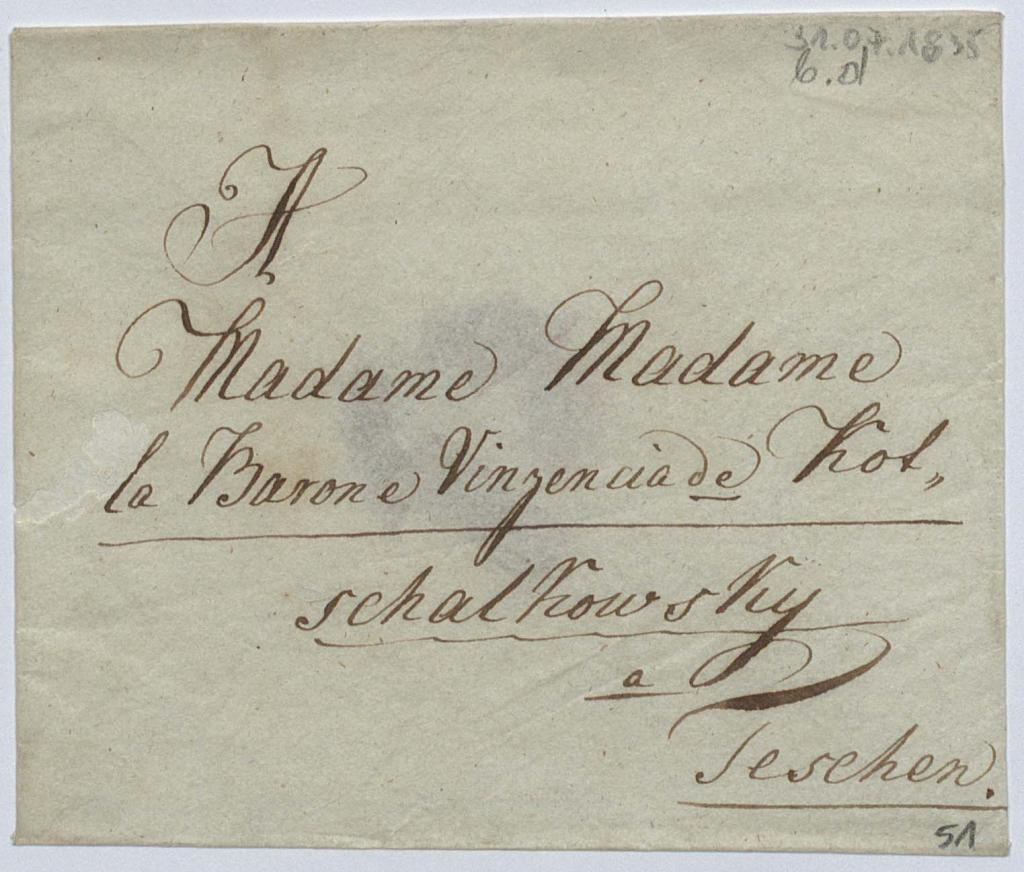 31.07.1835
6.d
A
Madame Madame
la Barone Vinzencia de Kot„
schalkowsky
a
Teschen.
51